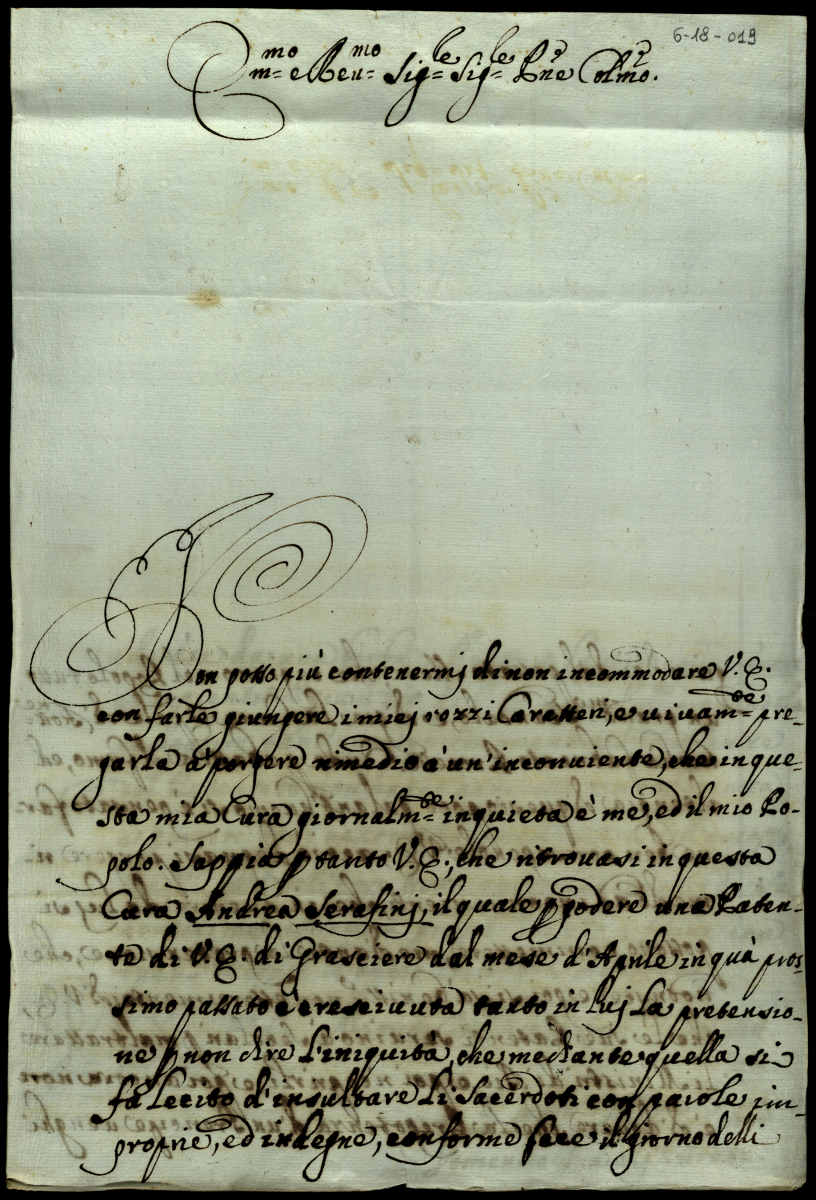 6-18-019
Emo e Reumo Sigle Sigle Pne Colmo.
Non posso più contenermj di non incommodare V.E.
con farle giungere i miej rozzi Caratteri, e viuamte pre-
garla à porgere rimedio à un'inconuiente, che in que-
sta mia Cura giornalmte inquieta è me, ed il mio Po-
polo. Sappia p tanto V.E., che ritrouasi in questa
Cura Andrea Serafinj, il quale p godere una Paten-
te di V.E. di Grasciere dal mese d'Aprile in quà pros-
simo passato è cresciuuta tanto in luj la pretensio-
ne p non dire l'iniquità, che mediante quella si
fà lecito d'insultare li Sacerdoti con parole im-
proprie, ed indegne, conforme fece il giorno delli